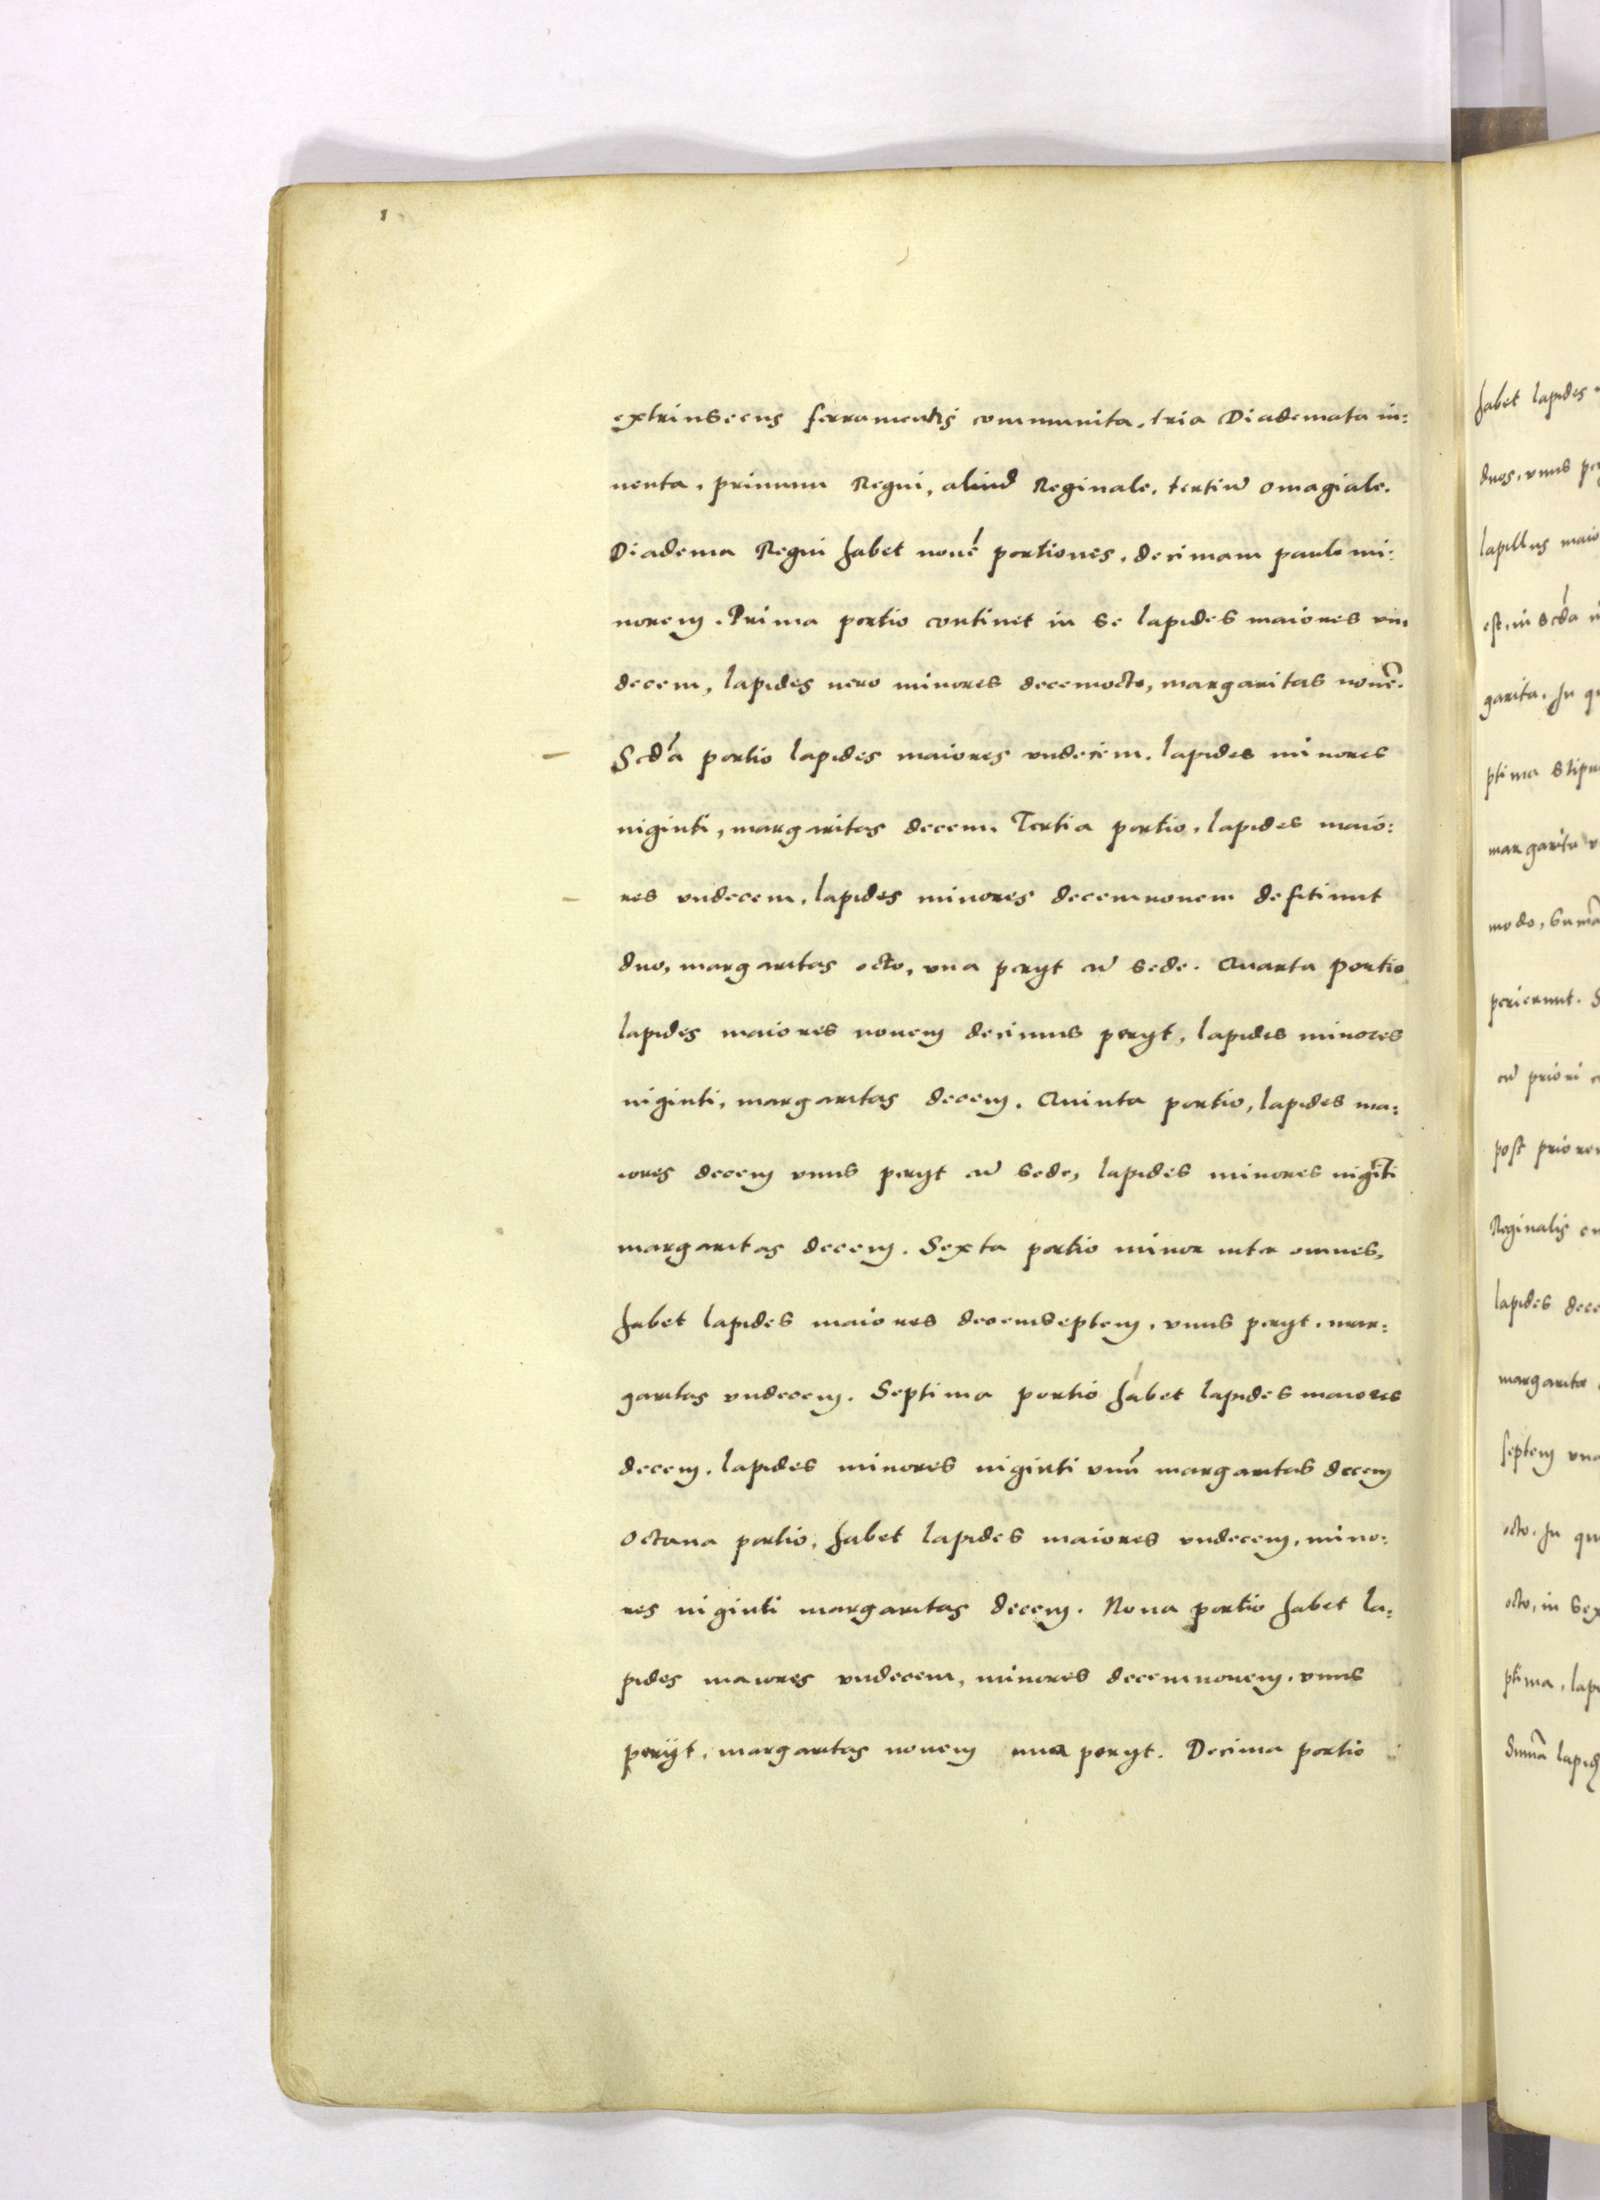 1
extrinsecus ferramentis communita, tria Diademata in:
uenta, primum Regni, aliud Reginale, tertiũ omagiale.
Diadema Regni habet nouẽ portiones, decimam paulo mi:
norem. Prima portio continet in se lapides maiores vn
decem, lapides uero minores decemocto, margaritas nouẽ.
Scd̃a portio lapides maiores vndecim, lapides minores
uiginti, margaritas decem. Tertia portio, lapides maio:
res vndecem, lapides minores decemnouem defitiunt
duo, margaritas octo, vna peryt cũ sede. Quarta portio
lapides maiores nouem decimus peryt, lapides minores
uiginti, margaritas decem. Quinta portio, lapides ma:
iores decem vnus peryt cũ sede, lapides minores uigĩti
margaritas decem. Sexta portio minor inter omnes,
habet lapides maiores decemseptem, vnus peryt, mar:
garitas vndecem. Septima portio habet lapides maiores
decem, lapides minores uiginti vnũ margaritas decem
octaua portio, habet lapides maiores vndecem, mino:
res uiginti margaritas decem. Nona portio habet la:
pides maiores vndecem, minores decemnouem, vnus
perÿt, margaritas nouem una peryt. Decima portio
habet lapides
duos, vnus
lapillus
est, in scd̃a
garita. In
ptima
margarita
modo,
perierunt.
cũ priori
post
Reginalis
lapides
margaritæ
septem
octo. In
octo, in
ptima,